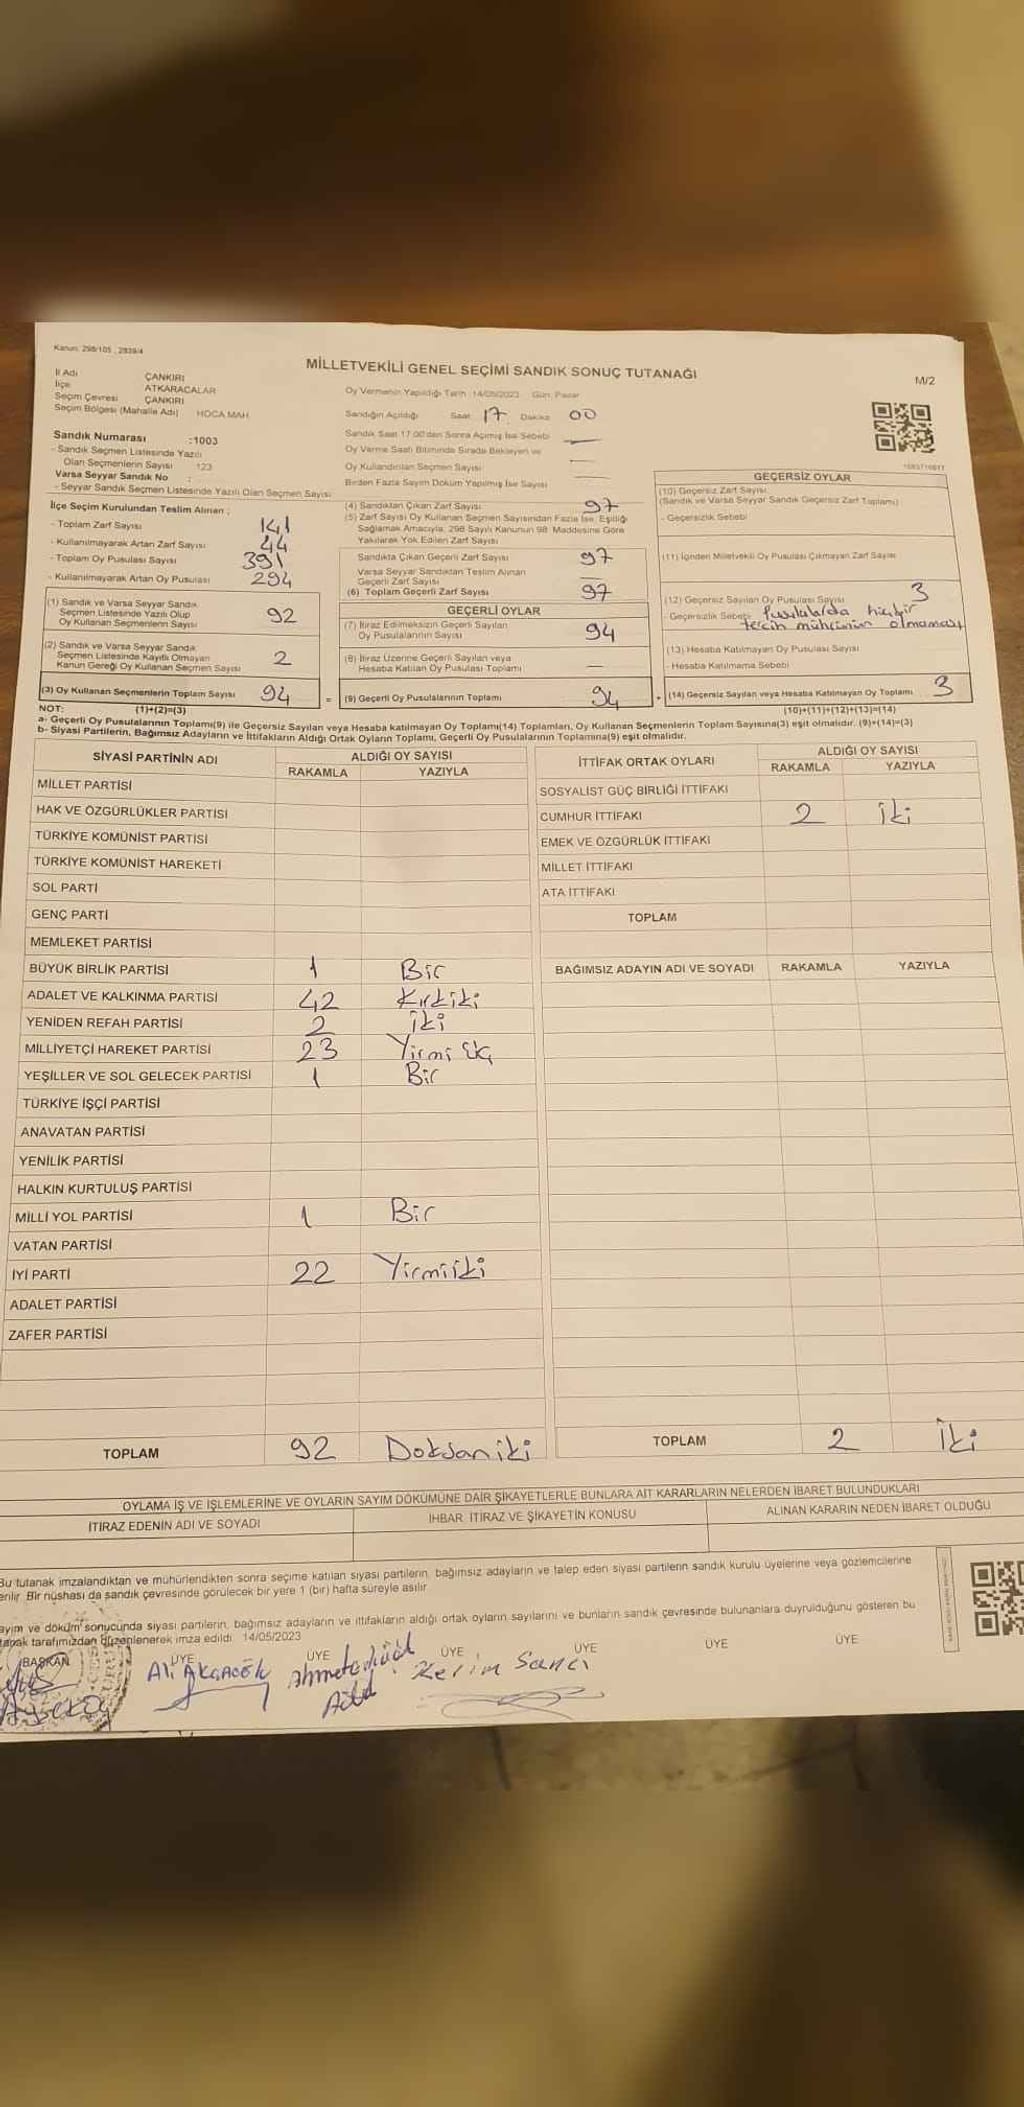 Kanun: 298/105 , 2839/4
MİLLETVEKİLİ GENEL SEÇİMİ SANDIK SONUÇ TUTANAĞI
M/2
İl Adı ÇANKIRI
İlçe ATKARACALAR
Seçim Çevresi ÇANKIRI
Seçim Bölgesi (Mahalle Adı) HOCA MAH.
Sandık Numarası :1003
- Sandık Seçmen Listesinde Yazılı
Olan Seçmenlerin Sayısı 123
Varsa Seyyar Sandık No :
- Seyyar Sandık Seçmen Listesinde Yazılı Olan Seçmen Sayısı
Oy Vermenin Yapıldığı Tarih : 14/05/2023 Gün: Pazar
Sandığın Açıldığı Saat: 17 Dakika: 00
Sandık Saat 17:00'den Sonra Açılmış İse Sebebi —
Oy Verme Saati Bitiminde Sırada Bekleyen ve
Oy Kullandırılan Seçmen Sayısı —
Birden Fazla Sayım Döküm Yapılmış İse Sayısı —
İlçe Seçim Kurulundan Teslim Alınan ;
- Toplam Zarf Sayısı 141
- Kullanılmayarak Artan Zarf Sayısı 44
- Toplam Oy Pusulası Sayısı 391
- Kullanılmayarak Artan Oy Pusulası 294
(1) Sandık ve Varsa Seyyar Sandık
Seçmen Listesinde Yazılı Olup
Oy Kullanan Seçmenlerin Sayısı 92
(2) Sandık ve Varsa Seyyar Sandık
Seçmen Listesinde Kayıtlı Olmayan
Kanun Gereği Oy Kullanan Seçmen Sayısı 2
(3) Oy Kullanan Seçmenlerin Toplam Sayısı 94
(4) Sandıktan Çıkan Zarf Sayısı 97
(5) Zarf Sayısı Oy Kullanan Seçmen Sayısından Fazla İse, Eşitliği
Sağlamak Amacıyla, 298 Sayılı Kanunun 98. Maddesine Göre
Yakılarak Yok Edilen Zarf Sayısı
Sandıkta Çıkan Geçerli Zarf Sayısı 97
Varsa Seyyar Sandıktan Teslim Alınan
Geçerli Zarf Sayısı —
(6) Toplam Geçerli Zarf Sayısı 97
GEÇERLİ OYLAR
(7) İtiraz Edilmeksizin Geçerli Sayılan
Oy Pusulalarının Sayısı 94
(8) İtiraz Üzerine Geçerli Sayılan veya
Hesaba Katılan Oy Pusulası Toplamı —
= (9) Geçerli Oy Pusulalarının Toplamı 94
GEÇERSİZ OYLAR
(10) Geçersiz Zarf Sayısı
(Sandık ve Varsa Seyyar Sandık Geçersiz Zarf Toplamı)
- Geçersizlik Sebebi
(11) İçinden Milletvekili Oy Pusulası Çıkmayan Zarf Sayısı
(12) Geçersiz Sayılan Oy Pusulası Sayısı 3
- Geçersizlik Sebebi Pusulalarda hiçbir
tercih mührünün olmaması
(13) Hesaba Katılmayan Oy Pusulası Sayısı
- Hesaba Katılmama Sebebi
+ (14) Geçersiz Sayılan veya Hesaba Katılmayan Oy Toplamı 3
NOT: (1)+(2)=(3) (10)+(11)+(12)+(13)=(14)
a- Geçerli Oy Pusulalarının Toplamı(9) ile Geçersiz Sayılan veya Hesaba katılmayan Oy Toplamı(14) Toplamları, Oy Kullanan Seçmenlerin Toplam Sayısına(3) eşit olmalıdır. (9)+(14)=(3)
b- Siyasi Partilerin, Bağımsız Adayların ve İttifakların Aldığı Ortak Oyların Toplamı, Geçerli Oy Pusulalarının Toplamına(9) eşit olmalıdır.
SİYASİ PARTİNİN ADI ALDIĞI OY SAYISI
RAKAMLA YAZIYLA
MİLLET PARTİSİ
HAK VE ÖZGÜRLÜKLER PARTİSİ
TÜRKİYE KOMÜNİST PARTİSİ
TÜRKİYE KOMÜNİST HAREKETİ
SOL PARTİ
GENÇ PARTİ
MEMLEKET PARTİSİ
BÜYÜK BİRLİK PARTİSİ 1 Bir
ADALET VE KALKINMA PARTİSİ 42 Kırkiki
YENİDEN REFAH PARTİSİ 2 iki
MİLLİYETÇİ HAREKET PARTİSİ 23 Yirmi üç
YEŞİLLER VE SOL GELECEK PARTİSİ 1 Bir
TÜRKİYE İŞÇİ PARTİSİ
ANAVATAN PARTİSİ
YENİLİK PARTİSİ
HALKIN KURTULUŞ PARTİSİ
MİLLİ YOL PARTİSİ 1 Bir
VATAN PARTİSİ
İYİ PARTİ 22 Yirmiiki
ADALET PARTİSİ
ZAFER PARTİSİ
TOPLAM 92 Doksaniki
İTTİFAK ORTAK OYLARI ALDIĞI OY SAYISI
RAKAMLA YAZIYLA
SOSYALİST GÜÇ BİRLİĞİ İTTİFAKI
CUMHUR İTTİFAKI 2 iki
EMEK VE ÖZGÜRLÜK İTTİFAKI
MİLLET İTTİFAKI
ATA İTTİFAKI
TOPLAM
BAĞIMSIZ ADAYIN ADI VE SOYADI RAKAMLA YAZIYLA
TOPLAM 2 iki
OYLAMA İŞ VE İŞLEMLERİNE VE OYLARIN SAYIM DÖKÜMÜNE DAİR ŞİKAYETLERLE BUNLARA AİT KARARLARIN NELERDEN İBARET BULUNDUKLARI
İTİRAZ EDENİN ADI VE SOYADI İHBAR, İTİRAZ VE ŞİKAYETİN KONUSU ALINAN KARARIN NEDEN İBARET OLDUĞU
Bu tutanak imzalandıktan ve mühürlendikten sonra seçime katılan siyasi partilerin, bağımsız adayların ve talep eden siyasi partilerin sandık kurulu üyelerine veya gözlemcilerine
erilir. Bir nüshası da sandık çevresinde görülecek bir yere 1 (bir) hafta süreyle asılır.
ayım ve döküm sonucunda siyasi partilerin, bağımsız adayların ve ittifakların aldığı ortak oyların sayılarını ve bunların sandık çevresinde bulunanlara duyrulduğunu gösteren bu
tanak tarafımızdan düzenlenerek imza edildi. 14/05/2023
BAŞKAN ÜYE ÜYE ÜYE ÜYE ÜYE ÜYE
Ali Kerim Sancı